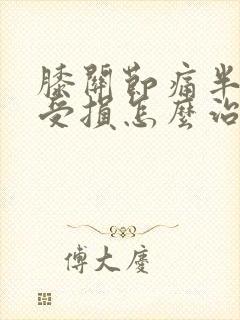 膝關節痛半
受損怎麼治
傅大慶